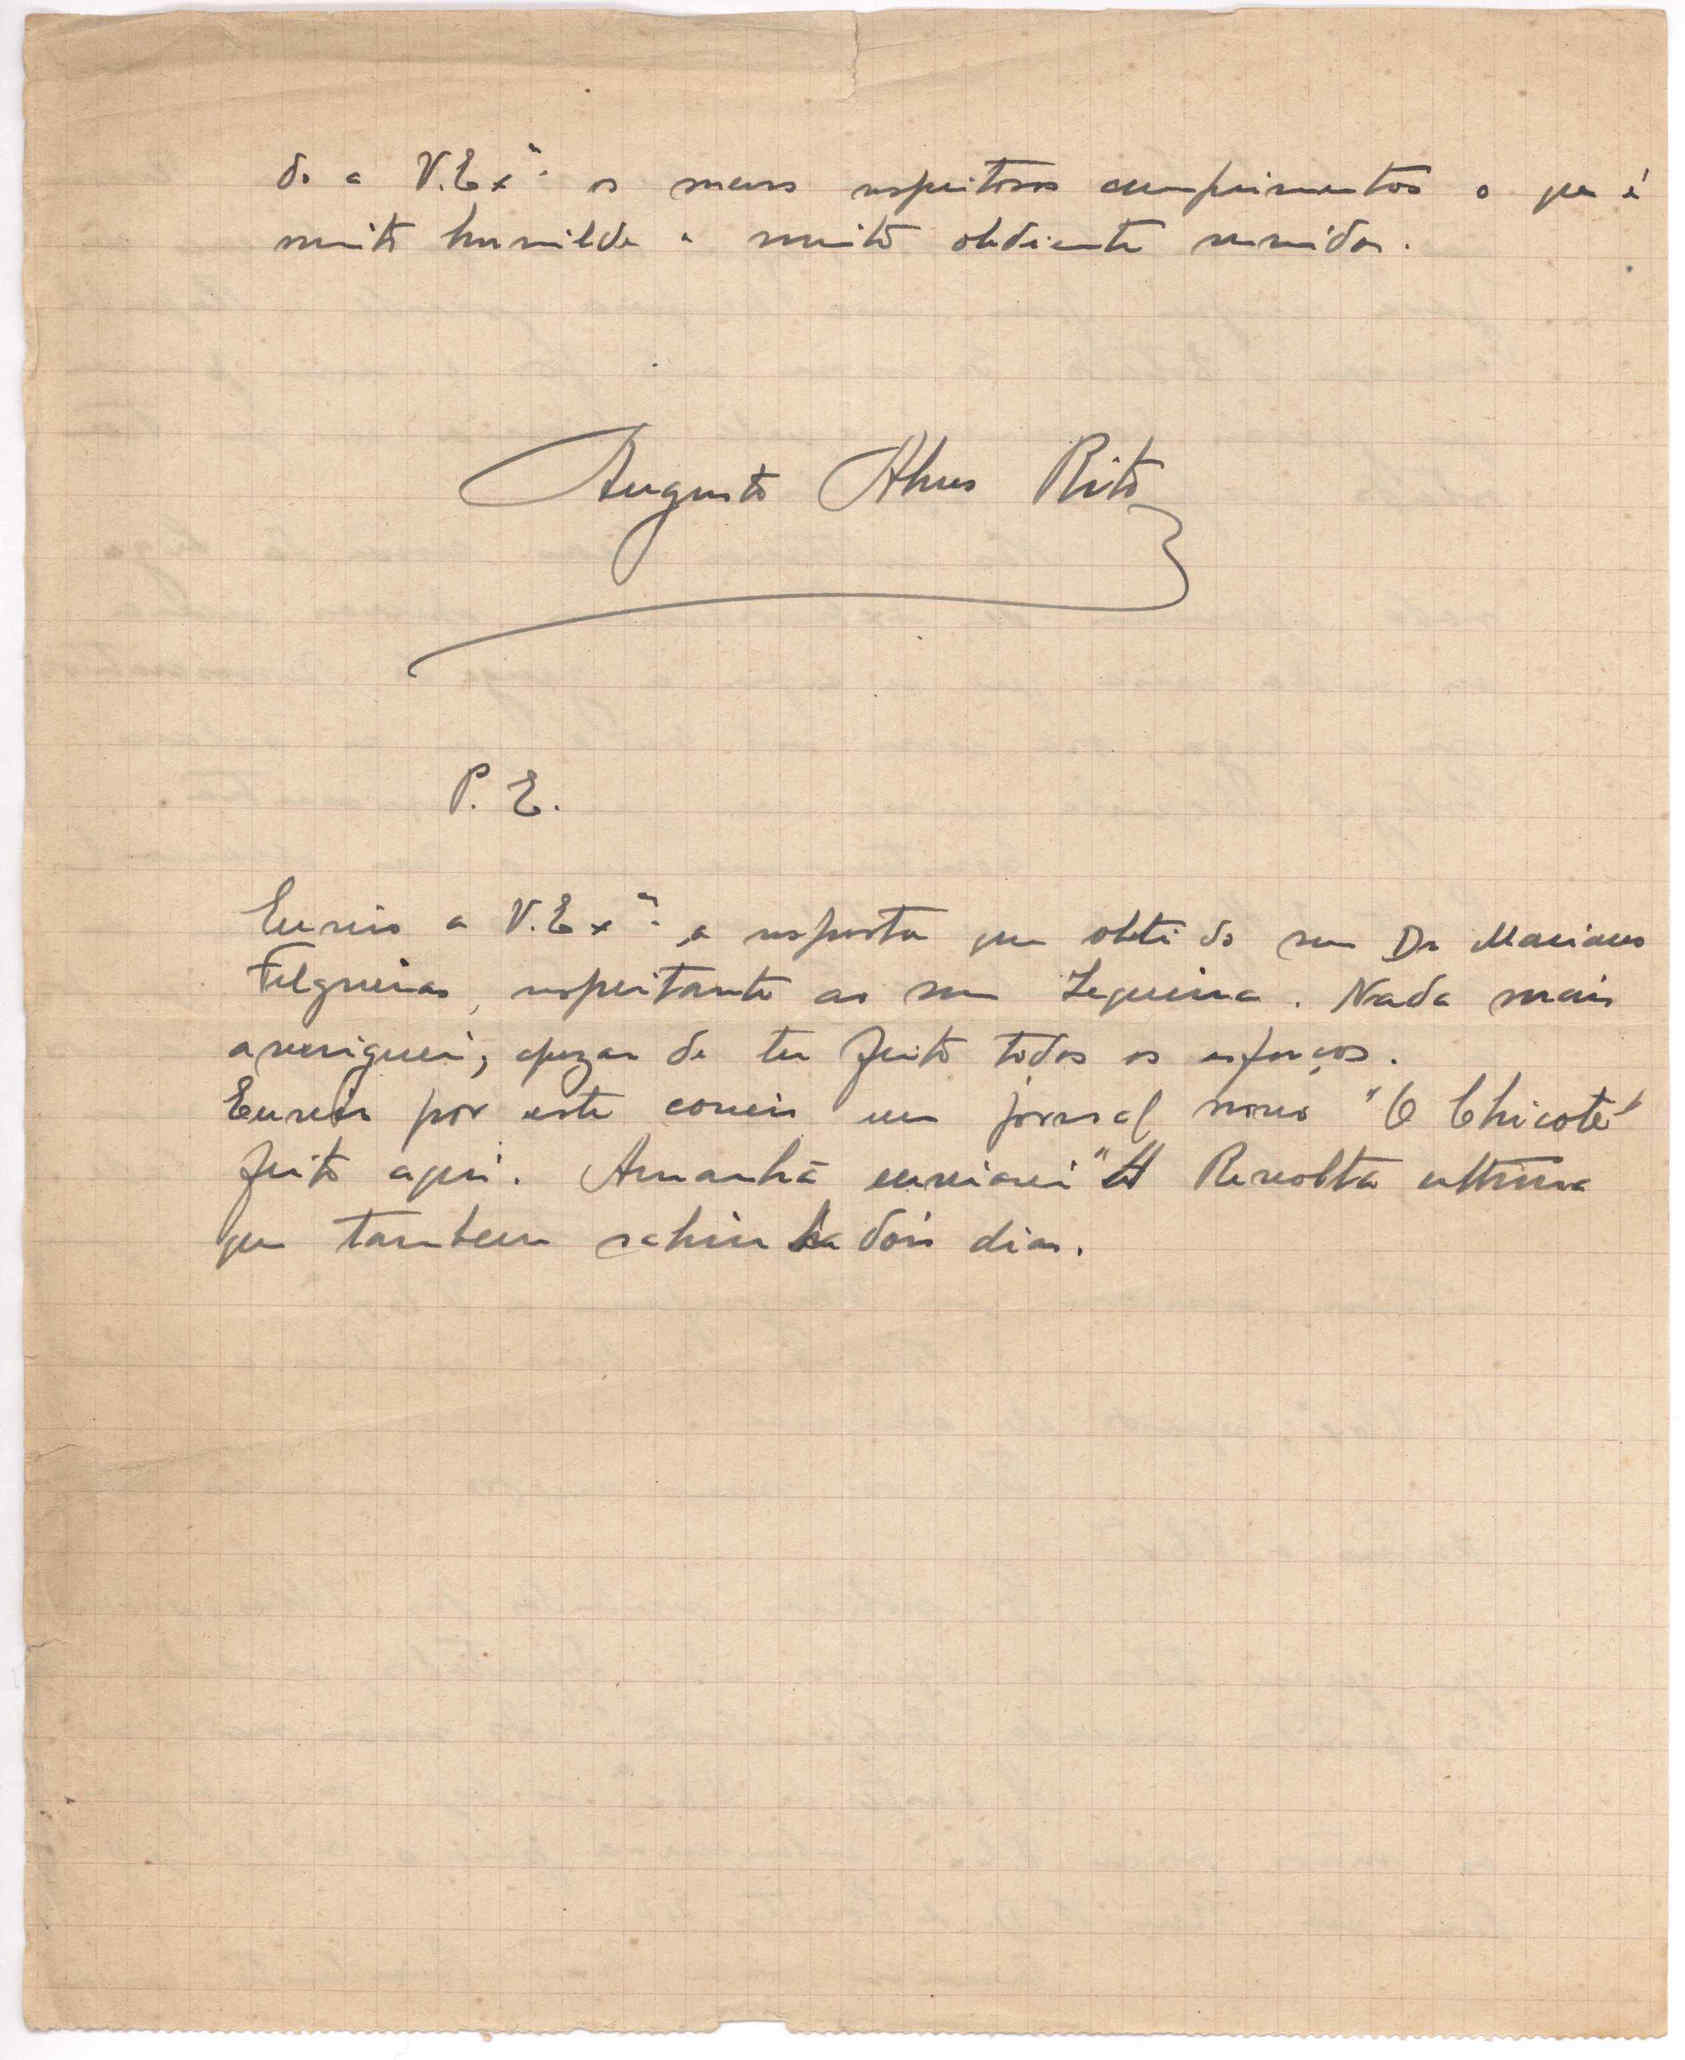 do a V. Exª. os meus respeitosos cumprimentos o que é
muito humilde e muito obdiente servidor.
Augusto Alves Rito
P. E.
Envio a V. Exª. a resposta que obti do snr Dr Mariano
Felgueiras, respeitante ao snr Sequeira. Nada mais
averiguei, apezar de ter feito todos os esforços.
Enviei por este correio um jornal novo "O Chicote"
feito aqui. Amanhã enviarei "A Revolta ultima
que tambem sahiu ha dois dias.